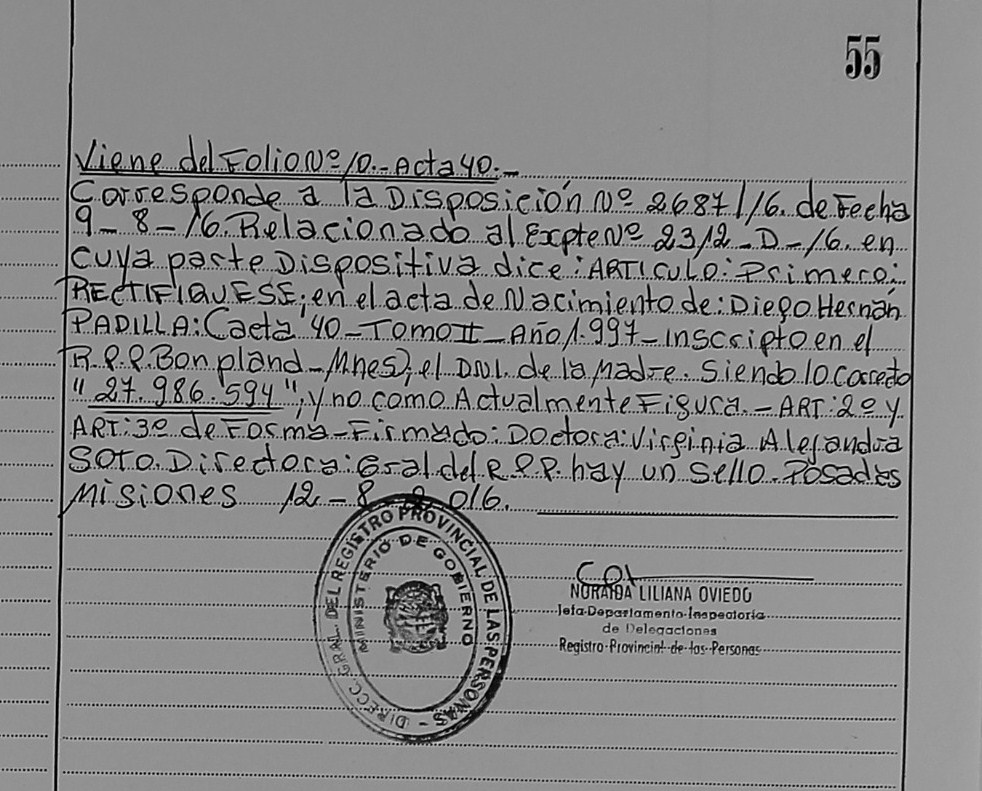 55
Viene del Folio Nº 10.- Acta 40.-
Corresponde a la Disposición Nº 2687/16. de Fecha
9-8-16. Relacionado al Expte Nº 2312-D-16. en
cuya parte Dispositiva dice: ARTICULO: Primero:
RECTIFIQUESE; en el acta de Nacimiento de: Diego Hernán
PADILLA: (acta 40-Tomo II-Año 1.997-Inscripto en el
R.P.P. Bonpland-Mnes), el DNI. de la Madre. Siendo lo correcto
"27.986.594", y no como Actualmente Figura.- ART: 2º y
ART: 3º de Forma-Firmado: Doctora: Virginia Alejandra
SOTO. Directora: Gral del R.P.P. hay un Sello. Posadas
Misiones 12-8-2016.
DIRECC. GRAL. DEL REGISTRO PROVINCIAL DE LAS PERSONAS -
MINISTERIO DE GOBIERNO
NORAIDA LILIANA OVIEDO
Jefa Departamento Inspectoria
de Delegaciones
Registro Provincial de las Personas